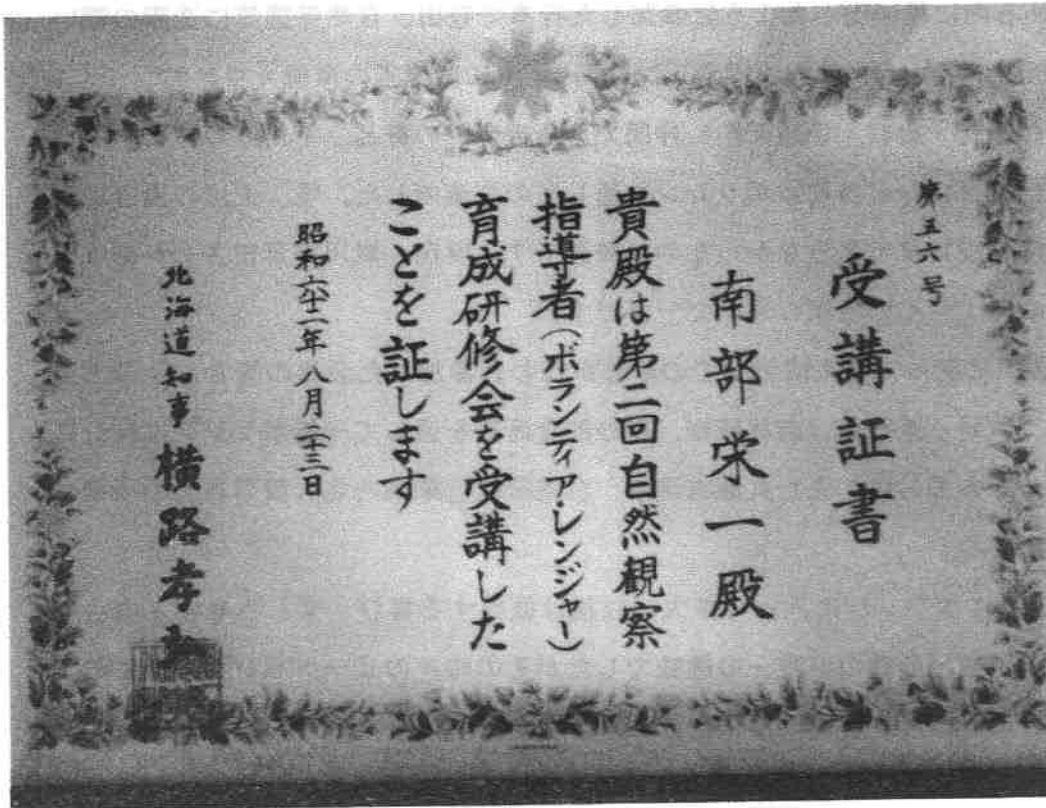 第五六号
受講証書
南部栄一殿
貴殿は第二回自然観察
指導者(ボランティア・レンジャー)
育成研修会を受講した
ことを証します
昭和六十二年八月二十三日
北海道知事 横路孝